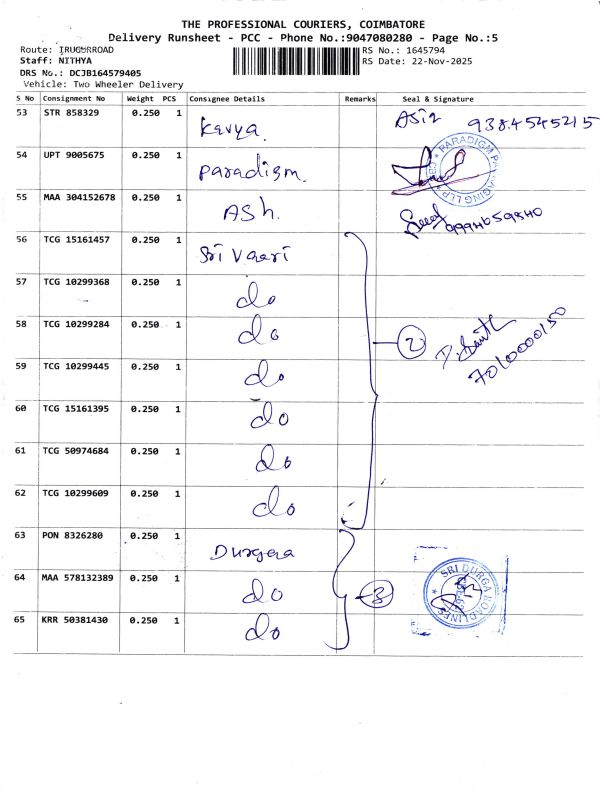 THE PROFESSIONAL COURIERS, COIMBATORE
Delivery Runsheet - PCC - Phone No.:9047080280 - Page No.:5
Route: IRUGURROAD
Staff: NITHYA
DRS No.: DCJB164579405
Vehicle: Two Wheeler Delivery
RS No.: 1645794
RS Date: 22-Nov-2025
S No Consignment No Weight PCS Consignee Details Remarks Seal & Signature
53 STR 858329 0.250 1 Kavya 9384545215
54 UPT 9005675 0.250 1 Paradigm PARADIGM PACKAGING LLP
55 MAA 304152678 0.250 1 ASh. 9994659840
56 TCG 15161457 0.250 1 Sri Vaari
57 TCG 10299368 0.250 1 do
58 TCG 10299284 0.250 1 do 7010000150
59 TCG 10299445 0.250 1 do
60 TCG 15161395 0.250 1 do
61 TCG 50974684 0.250 1 do
62 TCG 10299609 0.250 1 do
63 PON 8326280 0.250 1 Durgaa
64 MAA 578132389 0.250 1 do 3 SRI DURGA ROADLINES
65 KRR 50381430 0.250 1 do